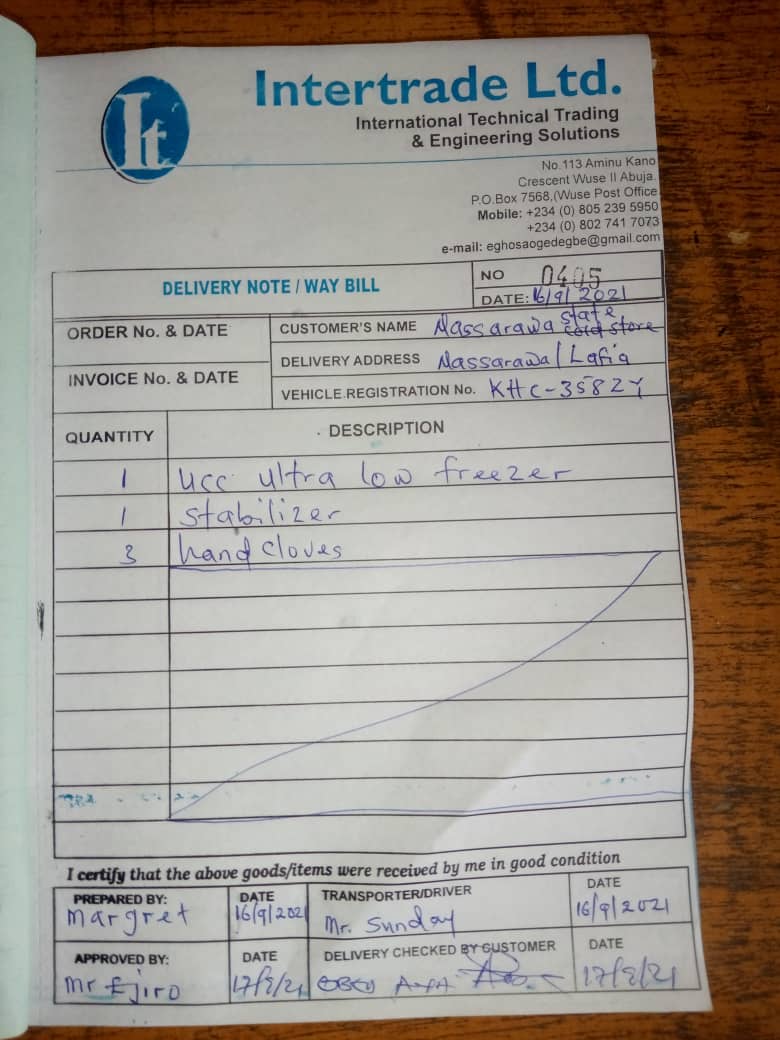 It
Intertrade Ltd.
International Technical Trading
& Engineering Solutions
No.113 Aminu Kano
Crescent Wuse II Abuja.
P.O.Box 7568,(Wuse Post Office
Mobile: +234 (0) 805 239 5950
+234 (0) 802 741 7073
e-mail: eghosaogedegbe@gmail.com
DELIVERY NOTE / WAY BILL
NO 0405
DATE: 16/9/2021
ORDER No. & DATE
CUSTOMER'S NAME Nassarawa state cold store
DELIVERY ADDRESS Nassarawa/Lafia
INVOICE No. & DATE
VEHICLE.REGISTRATION No. KHC-358ZY
QUANTITY DESCRIPTION
1 ucc ultra low freezer
1 stabilizer
3 hand cloves
I certify that the above goods/items were received by me in good condition
PREPARED BY: DATE TRANSPORTER/DRIVER DATE
Margret 16/9/2021 Mr. Sunday 16/9/2021
APPROVED BY: DATE DELIVERY CHECKED BY CUSTOMER DATE
Mr Ejiro 17/9/21 17/9/21